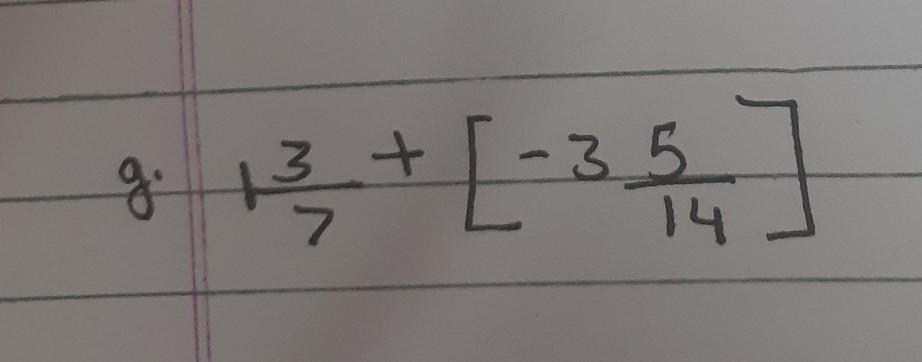 g. 1 3/7 + [-3 5/14]